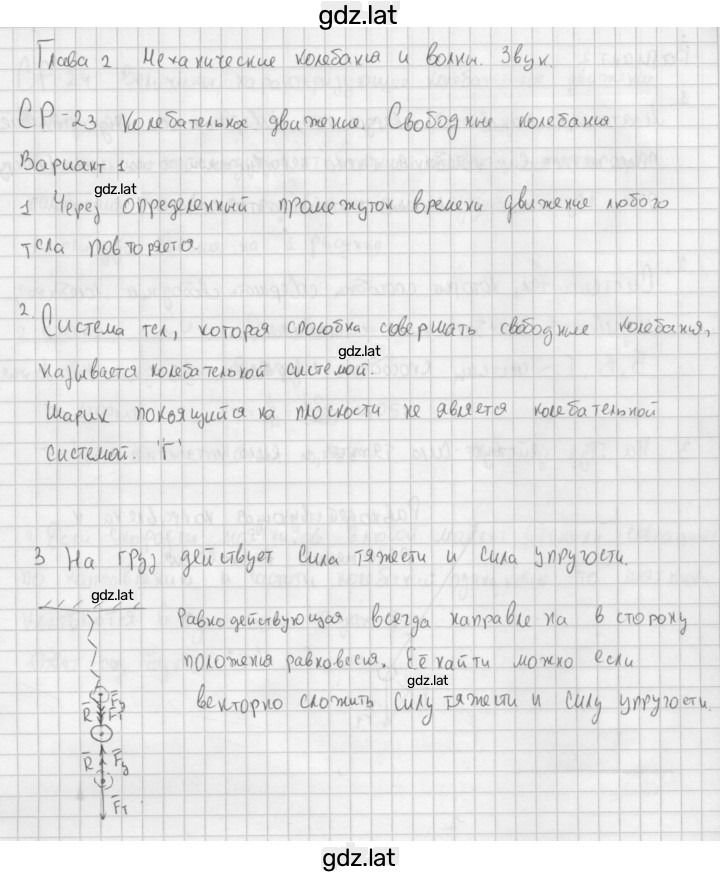 gdz.lat
Глава 2 Механические колебания и волны. Звук.
СР-23 Колебательное движение. Свободные колебания
Вариант 1
gdz.lat
1 Через определенный промежуток времени движение любого
тела повторяется.
2. Система тел, которая способна совершать свободные колебания,
gdz.lat
называется колебательной системой.
Шарик покоящийся на плоскости не является колебательной
системой. 'Г'
3 На груз действует сила тяжести и сила упругости.
gdz.lat
Равнодействующая всегда направлена в сторону
положения равновесия. Её найти можно если
gdz.lat
векторно сложить силу тяжести и силу упругости.
Fу
R Fт
R Fу
Fт
gdz.lat